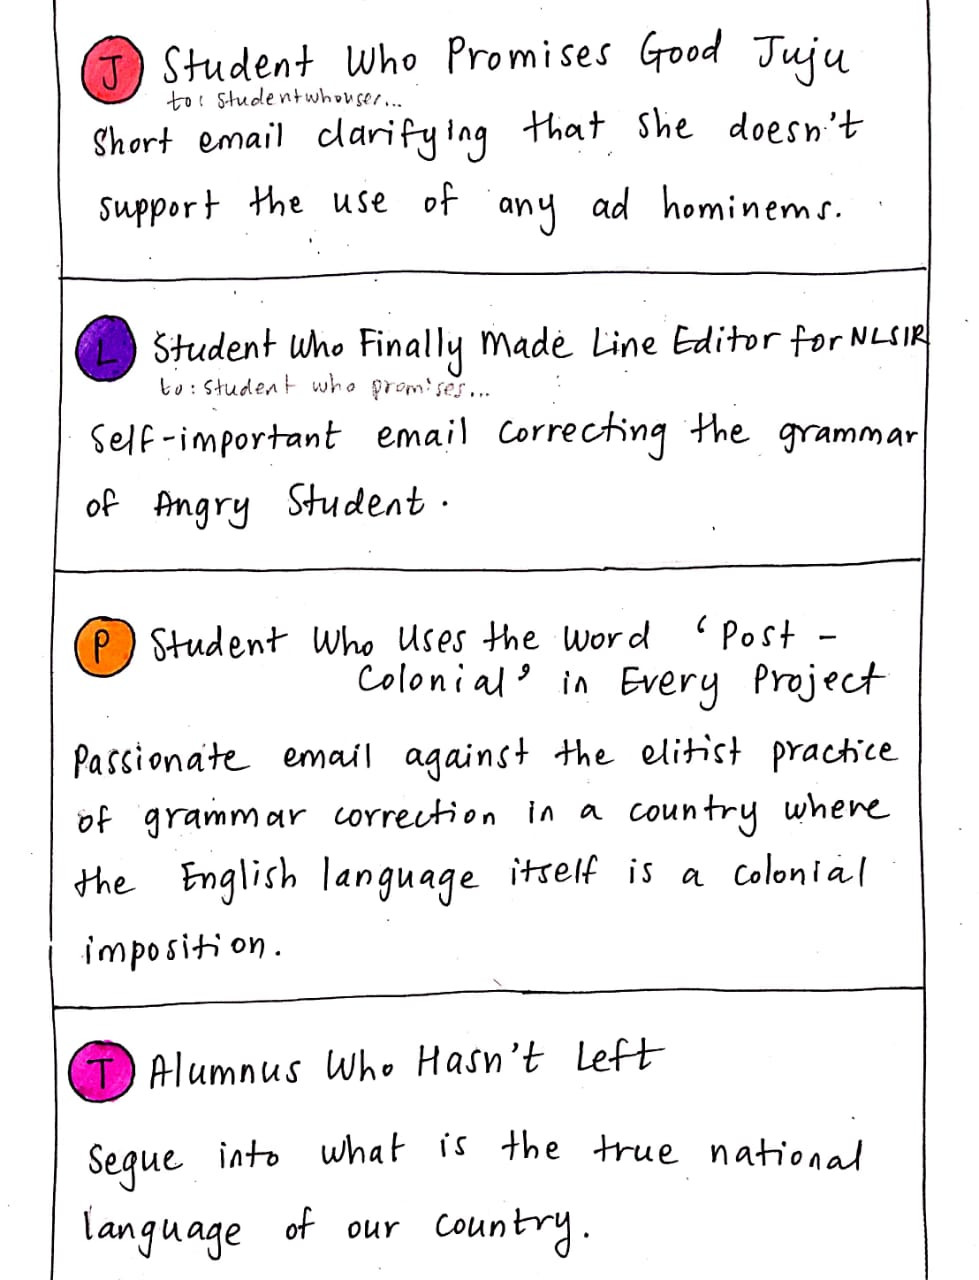 J Student Who Promises Good Juju
to: studentwhouser...
Short email clarifying that she doesn't
support the use of any ad hominems.
L Student Who Finally Made Line Editor for NLSIR
to: student who promises...
Self-important email correcting the grammar
of Angry Student.
P Student Who Uses the Word 'Post-
Colonial' in Every Project
Passionate email against the elitist practice
of grammar correction in a country where
the English language itself is a colonial
imposition.
T Alumnus Who Hasn't Left
Segue into what is the true national
language of our country.